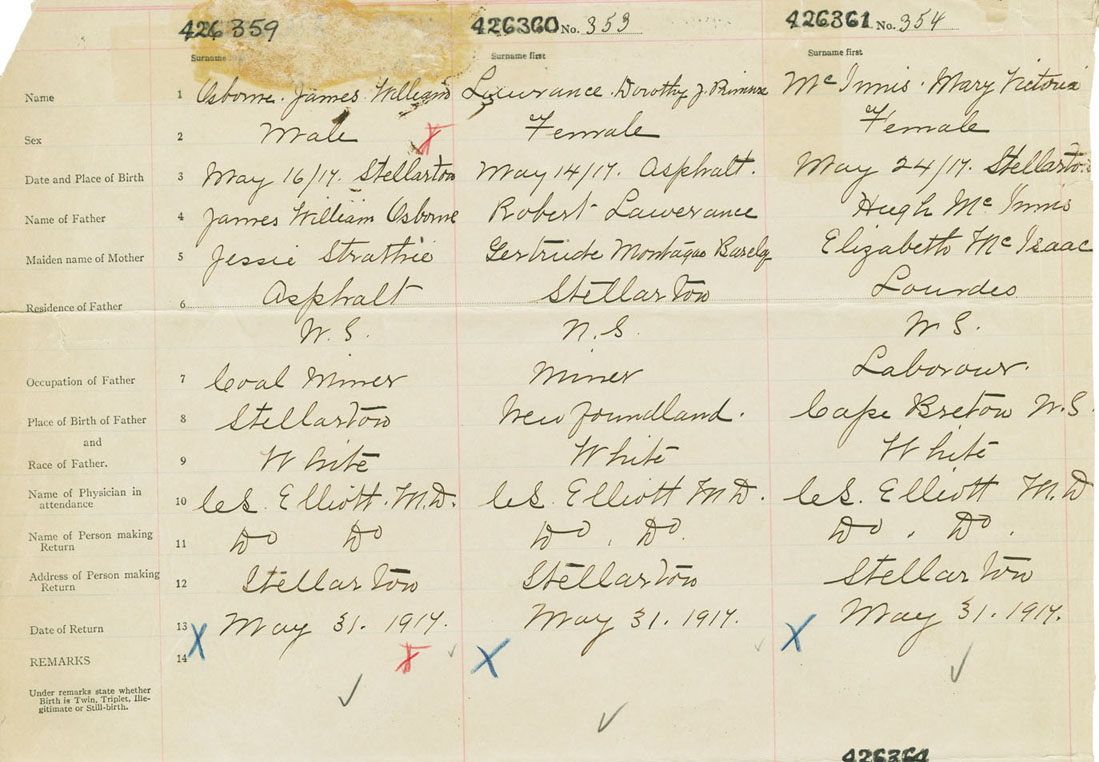 426359 426360 No. 353 426361 No. 354
Surname Surname first Surname first
Name 1 Osborne. James William Lawerance. Dorothy J. Mc Innis. Mary Victoria
Sex 2 Male X Female Female
Date and Place of Birth 3 May 16/17. Stellarton May 14/17. Asphalt. May 24/17. Stellarton
Name of Father 4 James William Osborne Robert Lawerance Hugh Mc Innis
Maiden name of Mother 5 Jessie Strathie Gertrude Elizabeth Mc Isaac
Residence of Father 6 Asphalt Stellarton Lourdes
N.S. N.S. N.S.
Occupation of Father 7 Coal Miner Miner Laborour.
Place of Birth of Father 8 Stellarton Newfoundland. Cape Breton N.S.
and
Race of Father. 9 White White White
Name of Physician in
attendance 10 C.S. Elliott. M.D. C.S. Elliott M.D. C.S. Elliott M.D
Name of Person making
Return 11 Do Do Do. Do. Do. Do.
Address of Person making
Return 12 Stellarton Stellarton Stellarton
Date of Return 13 X May 31. 1917. May 31. 1917. May 31. 1917.
REMARKS 14 X X X
Under remarks state whether
Birth is Twin, Triplet, Ille-
gitimate or Still-birth.
426364